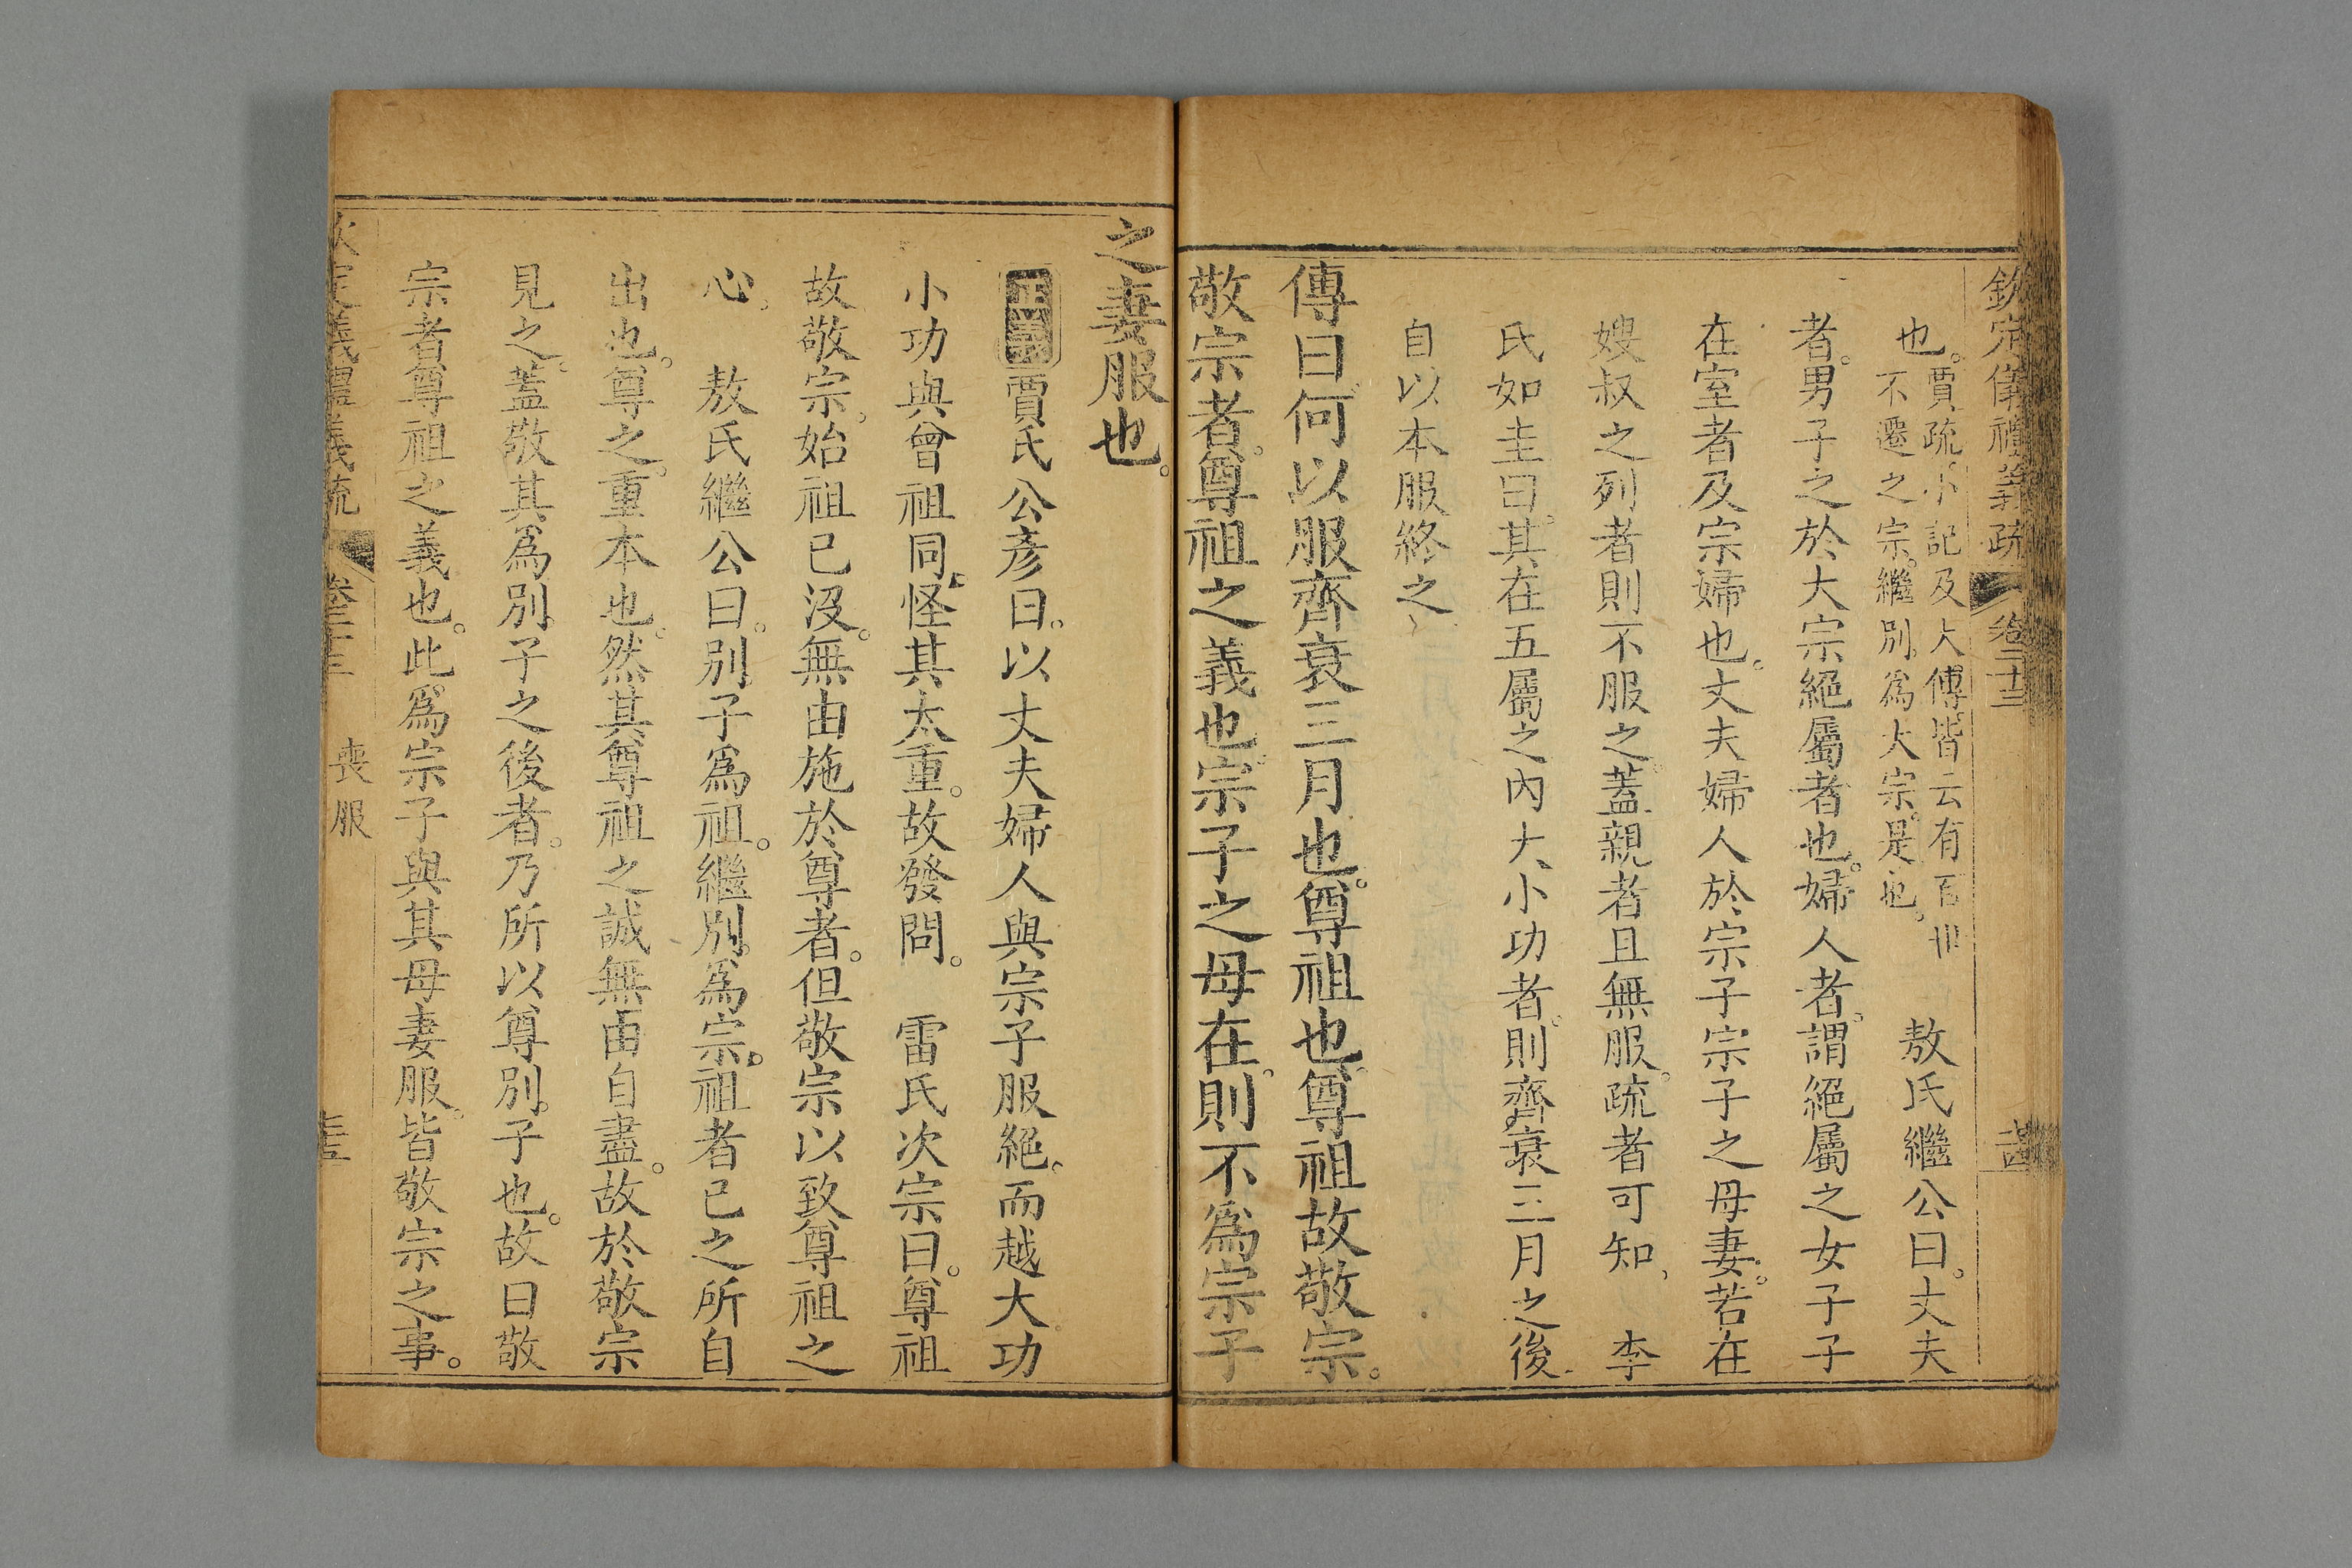 欽定儀禮義疏 卷二十三
也。賈疏、小記及大傳皆云有百卋
不遷之宗。繼別爲大宗是也。
敖氏繼公曰。丈夫
者。男子之於大宗絕屬者也。婦人者。謂絕屬之女子子
在室者及宗婦也。丈夫婦人於宗子宗子之母妻。若在
嫂叔之列者則不服之。蓋親者且無服。疏者可知、 李
氏如圭曰。其在五屬之內大小功者。則齊衰三月之後
自以本服終之、
傳曰。何以服齊衰三月也。尊祖也。尊祖故敬宗。
敬宗者。尊祖之義也。宗子之母在。則不爲宗子
之妻服也。
正義賈氏公彥曰。以丈夫婦人與宗子服絕。而越大功
小功與曾祖同。怪其太重。故發問。 雷氏次宗曰。尊祖
故敬宗。始祖已沒。無由施於尊者。但敬宗以致尊祖之
心。 敖氏繼公曰。別子爲祖。繼別爲宗。祖者已之所自
出也。尊之。重本也。然其尊祖之誠無由自盡。故於敬宗
見之。蓋敬其爲別子之後者。乃所以尊別子也。故曰敬
宗者尊祖之義也。此爲宗子與其母妻服。皆敬宗之事。
定儀禮義疏 卷二十三 喪服